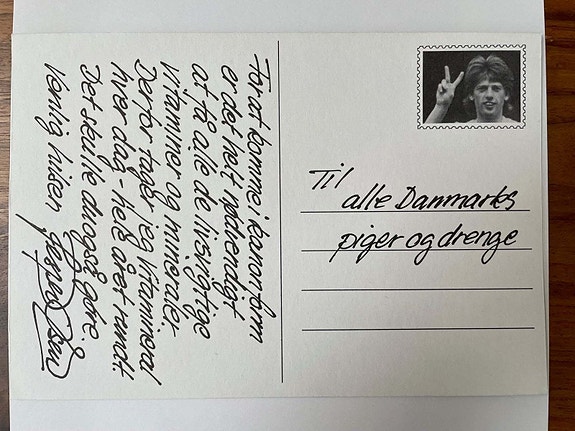 For at komme i kanonform
er det helt nødvendigt
at få alle de livsvigtige
vitaminer og mineraler.
Derfor tager jeg Vitamineral
hver dag - hele året rundt.
Det skulle du også gøre.
Venlig hilsen
Til
alle Danmarks
piger og drenge